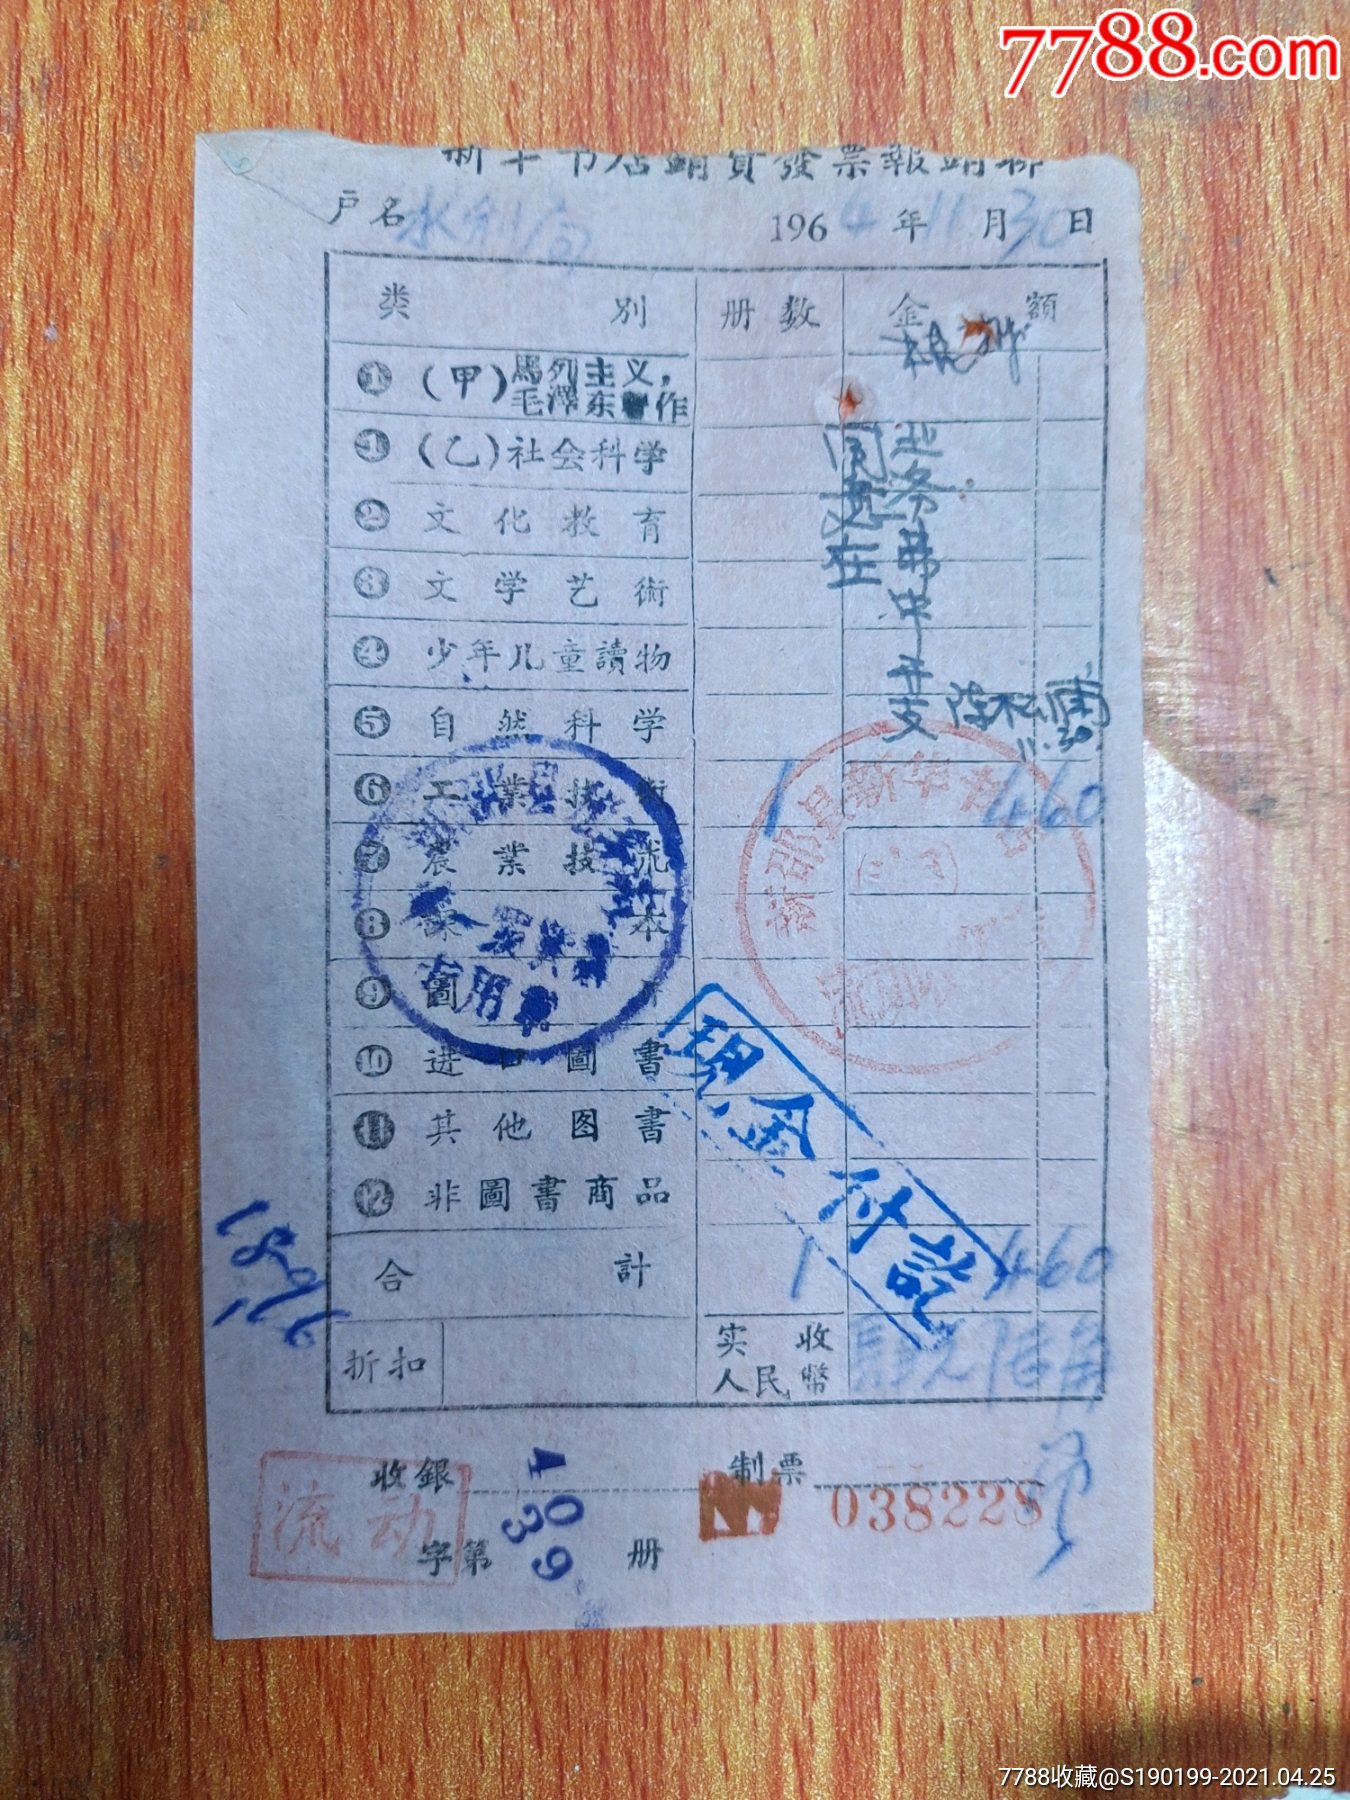 7788.com
新华书店銷貨發票報銷聯
户名 水利局 1964年11月30日
类別 册数 金額
❶ (甲) 馬列主义,
毛澤东著作
❶ (乙) 社会科学
❷ 文化教育
❸ 文学艺術
❹ 少年儿童讀物
❺ 自然科学
❻ 工業技術 1 4 60
❼ 農業技術
❽ 課本
❾ 圖片
❿ 进口圖書
⓫ 其他图書
⓬ 非圖書商品
合計 1 4 60
折扣 实收
人民幣 肆元陆角
同意在
业务费中开支
11.30
新邵县新华书店
現金付訖
收銀 制票
流动
字第 册
4039
038228
7788收藏@S190199-2021.04.25